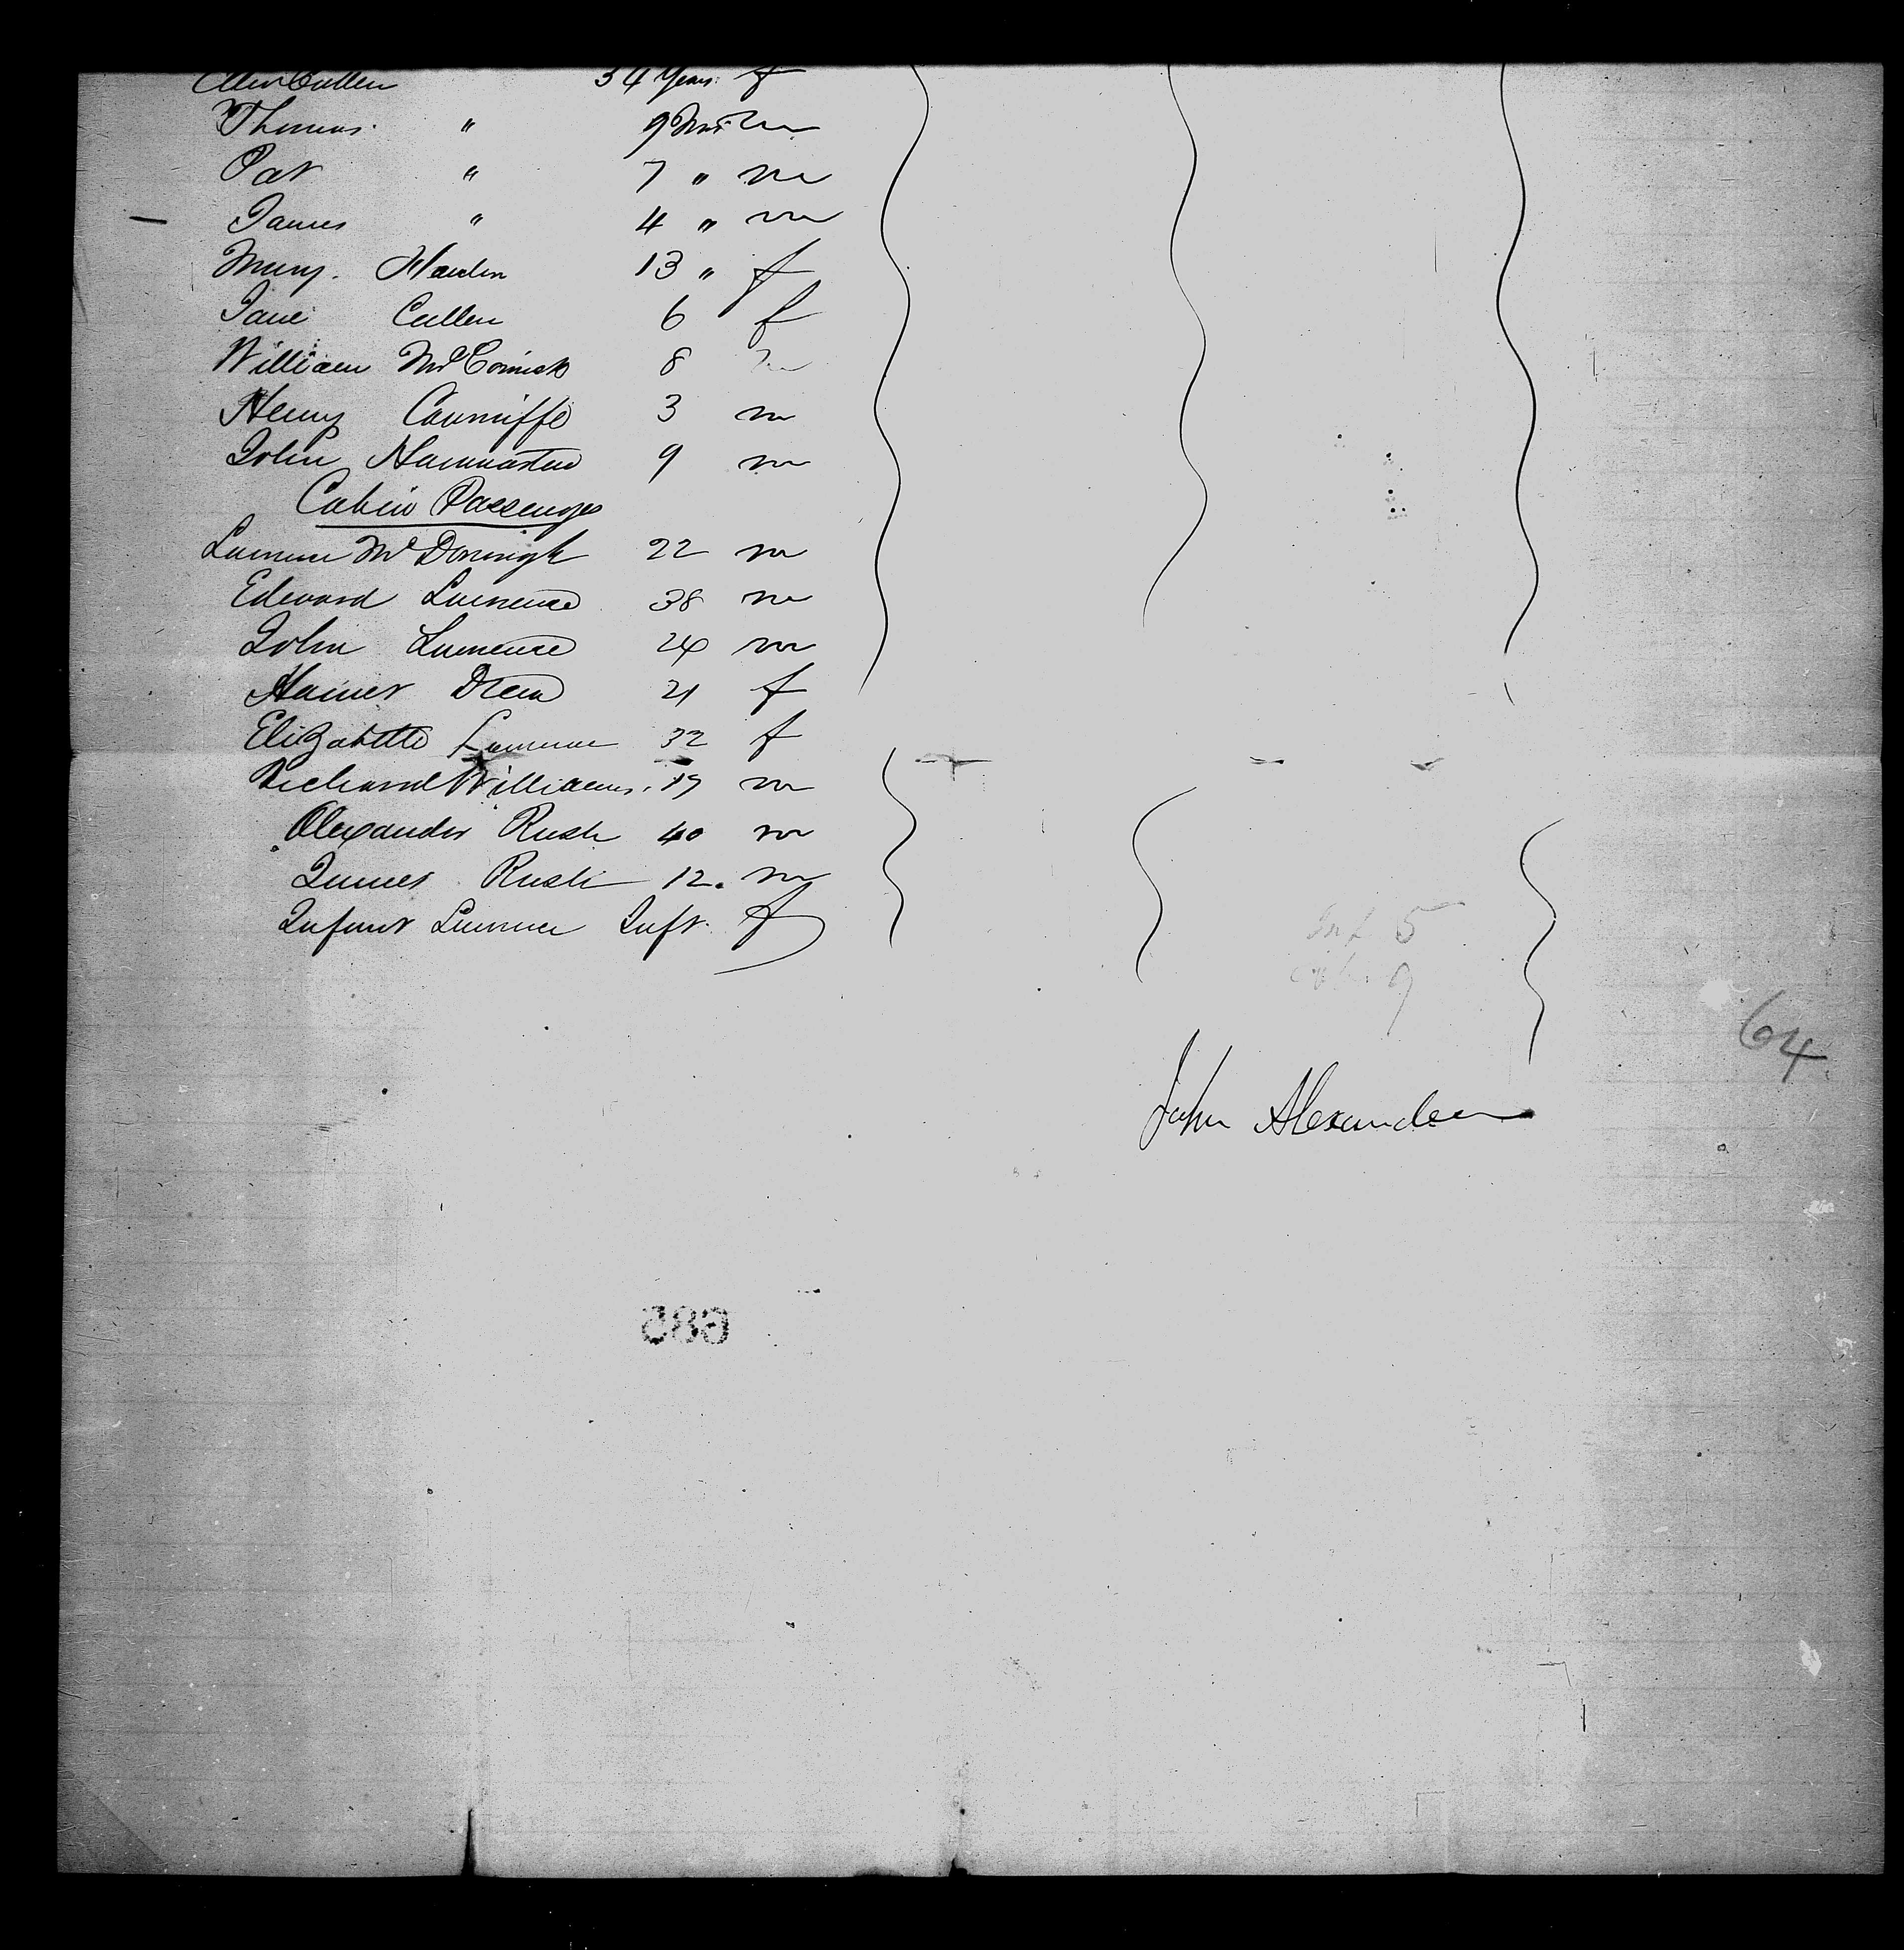 Ellen Cullen 34 Years f
Thomas " 9 Mos m
Pat " 7 " m
James " 4 " m
Mary. 13 " f
Jane Cullen 6 f
William McCormick 8 m
Henry Cunniffe 3 m
John 9 m
Cabin Passenges
22 m
Edward Lawrence 38 m
John Lawrence 24 m
21 f
Elizabeth Lawrence 32 f
Richard Williams. 19 m
Alexander Rush 40 m
James Rush 12. m
Infant Lawrence Inft. f
Inf 5
9
64
John Alexander
585